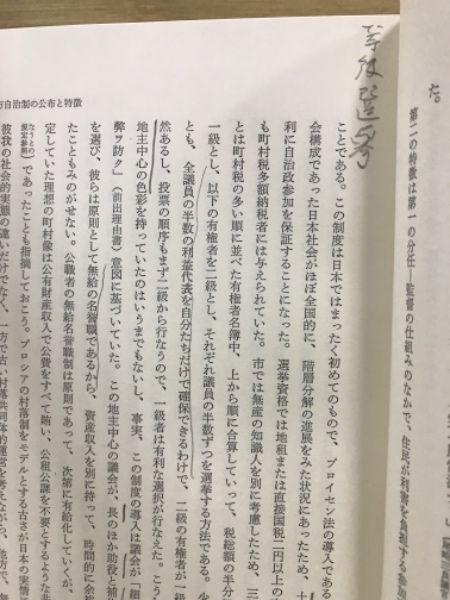 た。
第二の特徴は第一の分任―監督の仕組みのなかで、住民が利害を負担する参加
方自治制の公布と特徴
ことである。この制度は日本ではまったく初めてのもので、プロイセン法の導入である
会構成であった日本社会がほぼ全国的に、階層分解の進展をみた状況にあったため、
利に自治政参加を保証することになった。選挙資格では地租または直接国税二円以上の
も町村税多額納税者には与えられていた。市では無産の知識人を別に考慮したため、三
とは町村税の多い順に並べた有権者名簿中、上から順に合算していって、税総額の半分
一級とし、以下の有権者を二級とし、それぞれ議員の半数ずつを選挙する方法である。
とも、全議員の半数の利益代表を自分たちだけで確保できるわけで、二級の有権者が一級
然あるし、投票の順序もまず二級から行なうので、一級者は有利な選択が行なえた。こう
地主中心の色彩を持っていたのはいうまでもないし、事実、この制度の導入は議会が「細
弊ヲ防ク」(前出理由書)意図に基づいていた。この地主中心の議会が、長のほか助役と補
を選び、彼らは原則として無給の名誉職であるから、資産収入を別に持って、時間的に余
たこともみのがせない。公職者の無給名誉職制は原則であって、次第に有給化していくが、
定していた理想の町村像は公有財産収入で公費をすべて賄い、公租公課を不要とするような
)であったことも指摘しておこう。プロシアの村落制をモデルとする古さが日本の実情
彼我の社会的実態の違いだけでなく、一方で古い村落共同体的運営を考えながら、他方で、